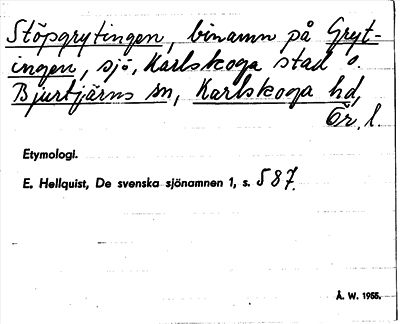 Stöpgrytingen, binamn på Gryt-
ingen, sjö, Karlskoga stad o.
Bjurtjärns sn, Karlskoga hd,
Ör. l.
Etymologi.
E. Hellquist, De svenska sjönamnen 1, s. 587.
Å. W. 1955.